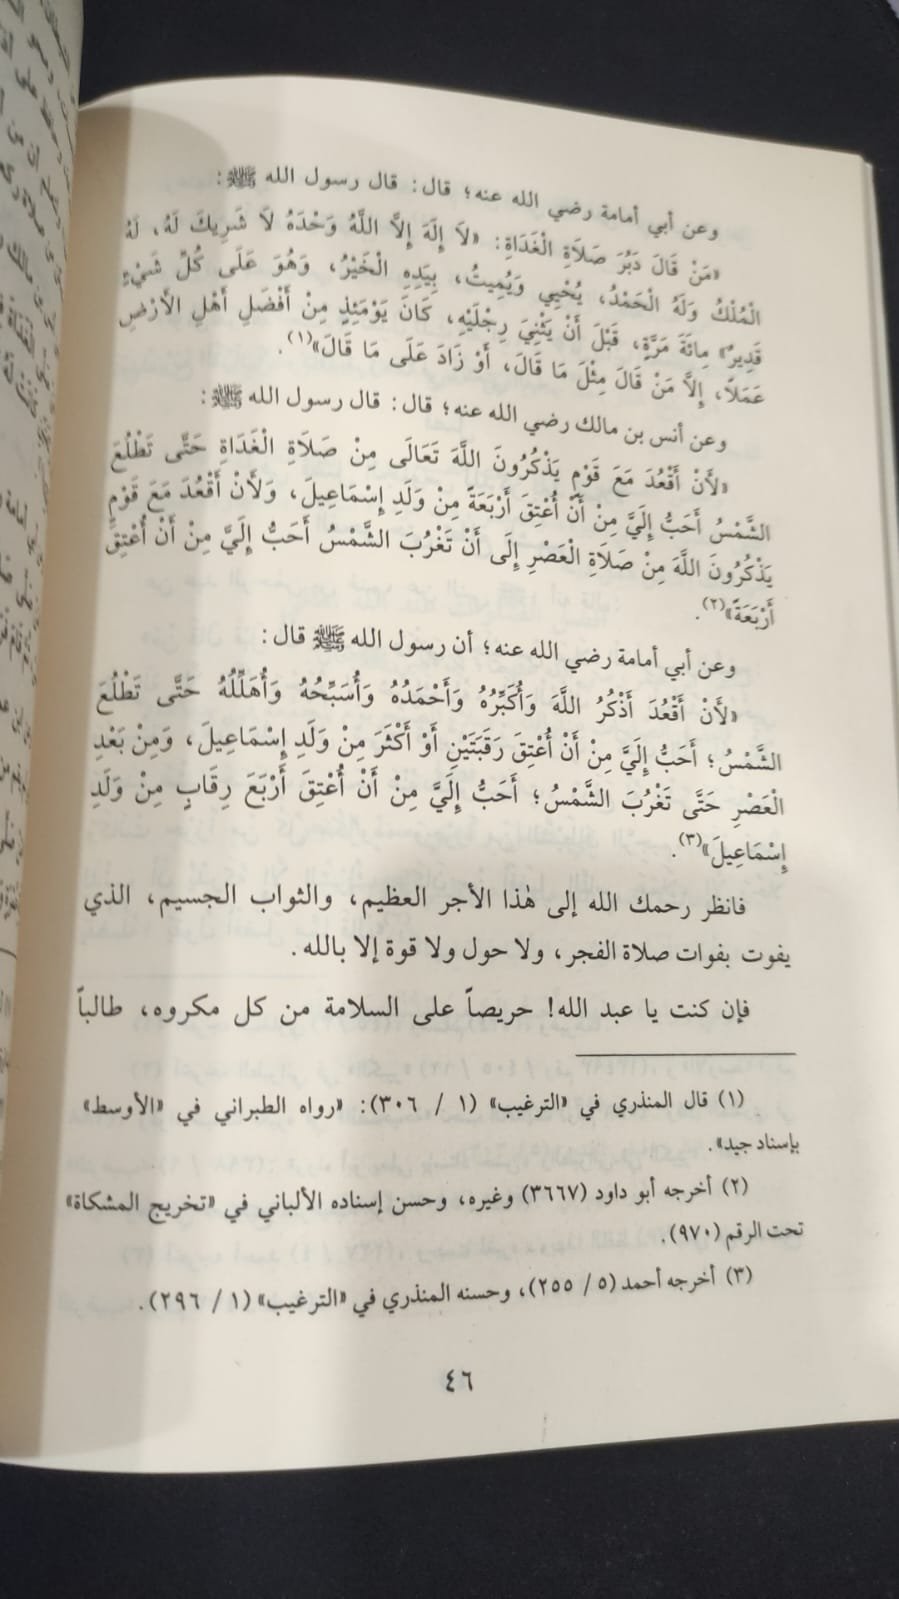 وعن أبي أمامة رضي الله عنه؛ قال: قال رسول الله ﷺ:
«مَنْ قَالَ دَبُرَ صَلَاةِ الْغَدَاةِ: «لاَ إِلَهَ إِلاَّ اللَّهُ وَحْدَهُ لاَ شَرِيكَ لَهُ، لَهُ
الْمُلْكُ وَلَهُ الْحَمْدُ، يُحْيِي وَيُمِيتُ، بِيَدِهِ الْخَيْرُ، وَهُوَ عَلَى كُلِّ شَيْءٍ
قَدِيرٌ» مِائَةَ مَرَّةٍ، قَبْلَ أَنْ يَثْنِيَ رِجْلَيْهِ، كَانَ يَوْمَئِذٍ مِنْ أَفْضَلِ أَهْلِ الأَرْضِ
عَمَلاً، إِلاَّ مَنْ قَالَ مِثْلَ مَا قَالَ، أَوْ زَادَ عَلَى مَا قَالَ»(١).
وعن أنس بن مالك رضي الله عنه؛ قال: قال رسول الله ﷺ:
«لَأَنْ أَقْعُدَ مَعَ قَوْمٍ يَذْكُرُونَ اللَّهَ تَعَالَى مِنْ صَلَاةِ الْغَدَاةِ حَتَّى تَطْلُعَ
الشَّمْسُ أَحَبُّ إِلَيَّ مِنْ أَنْ أُعْتِقَ أَرْبَعَةً مِنْ وَلَدِ إِسْمَاعِيلَ، وَلَأَنْ أَقْعُدَ مَعَ قَوْمٍ
يَذْكُرُونَ اللَّهَ مِنْ صَلَاةِ الْعَصْرِ إِلَى أَنْ تَغْرُبَ الشَّمْسُ أَحَبُّ إِلَيَّ مِنْ أَنْ أُعْتِقَ
أَرْبَعَةً»(٢).
وعن أبي أمامة رضي الله عنه؛ أن رسول الله ﷺ قال:
«لَأَنْ أَقْعُدَ أَذْكُرُ اللَّهَ وَأُكَبِّرُهُ وَأَحْمَدُهُ وَأُسَبِّحُهُ وَأُهَلِّلُهُ حَتَّى تَطْلُعَ
الشَّمْسُ؛ أَحَبُّ إِلَيَّ مِنْ أَنْ أُعْتِقَ رَقَبَتَيْنِ أَوْ أَكْثَرَ مِنْ وَلَدِ إِسْمَاعِيلَ، وَمِنْ بَعْدِ
الْعَصْرِ حَتَّى تَغْرُبَ الشَّمْسُ؛ أَحَبُّ إِلَيَّ مِنْ أَنْ أُعْتِقَ أَرْبَعَ رِقَابٍ مِنْ وَلَدِ
إِسْمَاعِيلَ»(٣).
فانظر رحمك الله إلى هٰذا الأجر العظيم، والثواب الجسيم، الذي
يفوت بفوات صلاة الفجر، ولا حول ولا قوة إلا بالله.
فإن كنت يا عبد الله! حريصاً على السلامة من كل مكروه، طالباً
(١) قال المنذري في «الترغيب» (١ / ٣٠٦): «رواه الطبراني في «الأوسط»
بإسناد جيد».
(٢) أخرجه أبو داود (٣٦٦٧) وغيره، وحسن إسناده الألباني في «تخريج المشكاة»
تحت الرقم (٩٧٠).
(٣) أخرجه أحمد (٥ / ٢٥٥)، وحسنه المنذري في «الترغيب» (١ / ٢٩٦).
٤٦